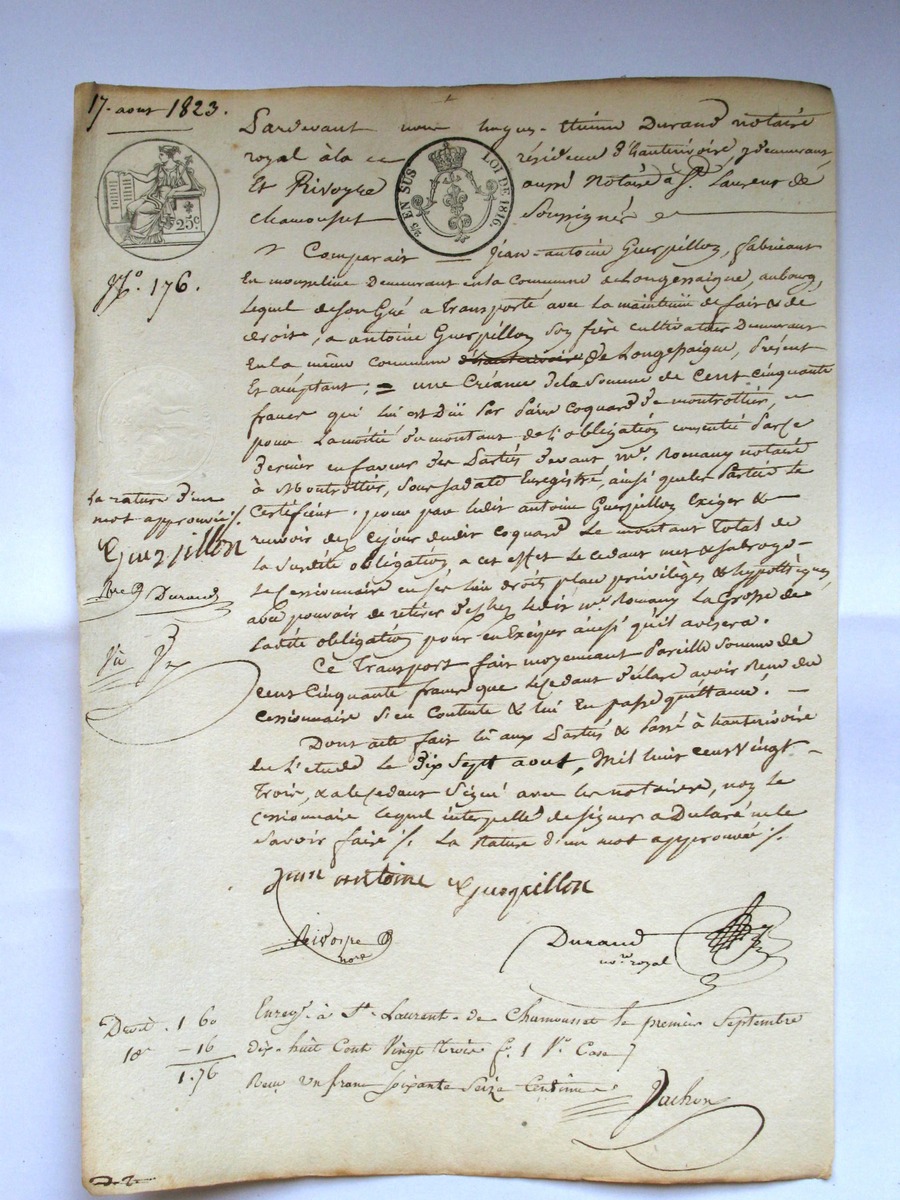 17. aout 1823.
Pardevant nous hugues-étienne Durand notaire
royal à la résidence d'hauterivoire y demeurant
Et Rivoyre aussi Notaire à St. Laurent de
chamousset Soussignés
25 EN SUS
LOI DE 1816.
25c
No. 176.
Comparait Jean-antoine Guerpillon, fabricant
En mousseline Demeurant en la Commune de Longessaigne, au bourg,
Lequel de son Gré a Transporté avec la maintenue de fait & de
droit, a antoine Guerpillon son frère cultivateur Demeurant
En la même commune d'hauterivoire de Longessaigne, présent
Et acceptant; une Créance de la Somme de Cent cinquante
francs qui lui est Düe par Coquard de montrottier,
pour La moitié du montant de l'obligation consentie par ce
dernier en faveur des Parties devant me. Romany notaire
à Montrottier, Sous sa date Enregistré, ainsi que les Parties le
Certifient. pour par ledit antoine Guerpillon Exiger &
recevoir dès Ce jour dudit Coquard Le montant Total de
La Susdite obligation, a cet effet Le Cedant met & subroge
Le Cessionnaire en ses lieu droits, place privilèges & hypothèques,
avec pouvoir de retirer de chez ledit me. Romany La Grosse de
Ladite obligation pour en Exciper ainsi qu'il avisera.
Ce Transport fait moyennant Pareille Somme de
Cent Cinquante francs que Le Cedant déclare avoir Reçu du
Cessionnaire S'en Contente & lui En passe quittance.
Dont acte fait lu aux Parties & Passé à hauterivoire
En L'etude Le dix Sept aout, Mil huit cent Vingt
Trois, & a le Cedant Signé avec les notaires, non le
Cessionnaire lequel interpellé de signer a Déclaré ne le
Savoir faire /. La Rature d'un mot approuvée /.
La rature d'un
mot approuvée /.
Guerpillon
Rre Durand
Vu
Jean antoine Guerpillon
Rivoyre
nore
Durand
nore royal
Decd. 1 60
10e - 16
1.76
Enregé. à St. Laurent-de Chamousset le premier Septembre
dix-huit Cent Vingt trois fo. 1 Vo. Case 7
Reçu un franc Soixante Seize Centimes
Vachon